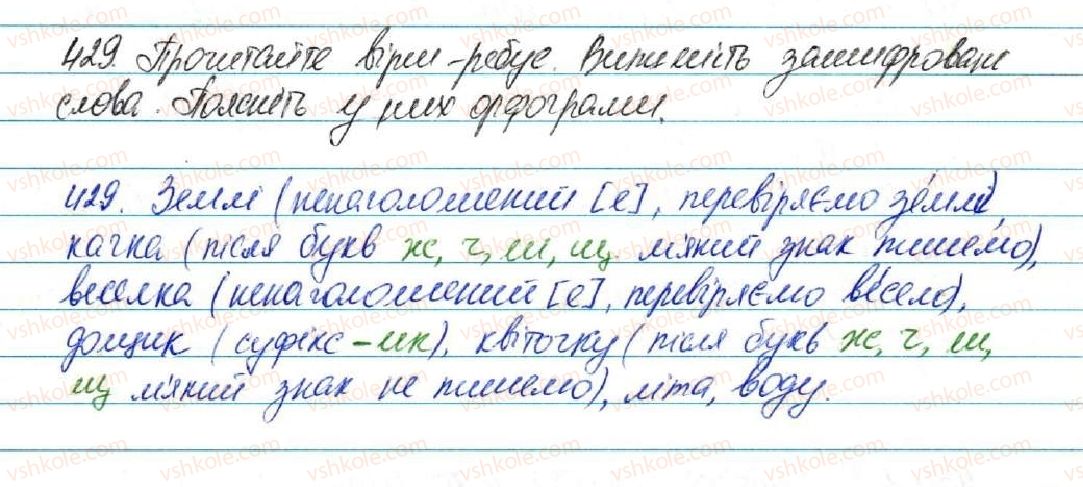 429. Прочитайте вірш-ребус. Випишіть зашифровані
слова. Поясніть у них орфограми.
429. Землі (ненаголошений [е], перевіряємо зе́млі),
качка (після букв ж, ч, ш, щ м'який знак пишемо),
веселка (ненаголошений [е], перевіряємо ве́село),
дощик (суфікс -ик), квіточку (після букв ж, ч, ш,
щ м'який знак не пишемо), літа, воду.
vshkole.com